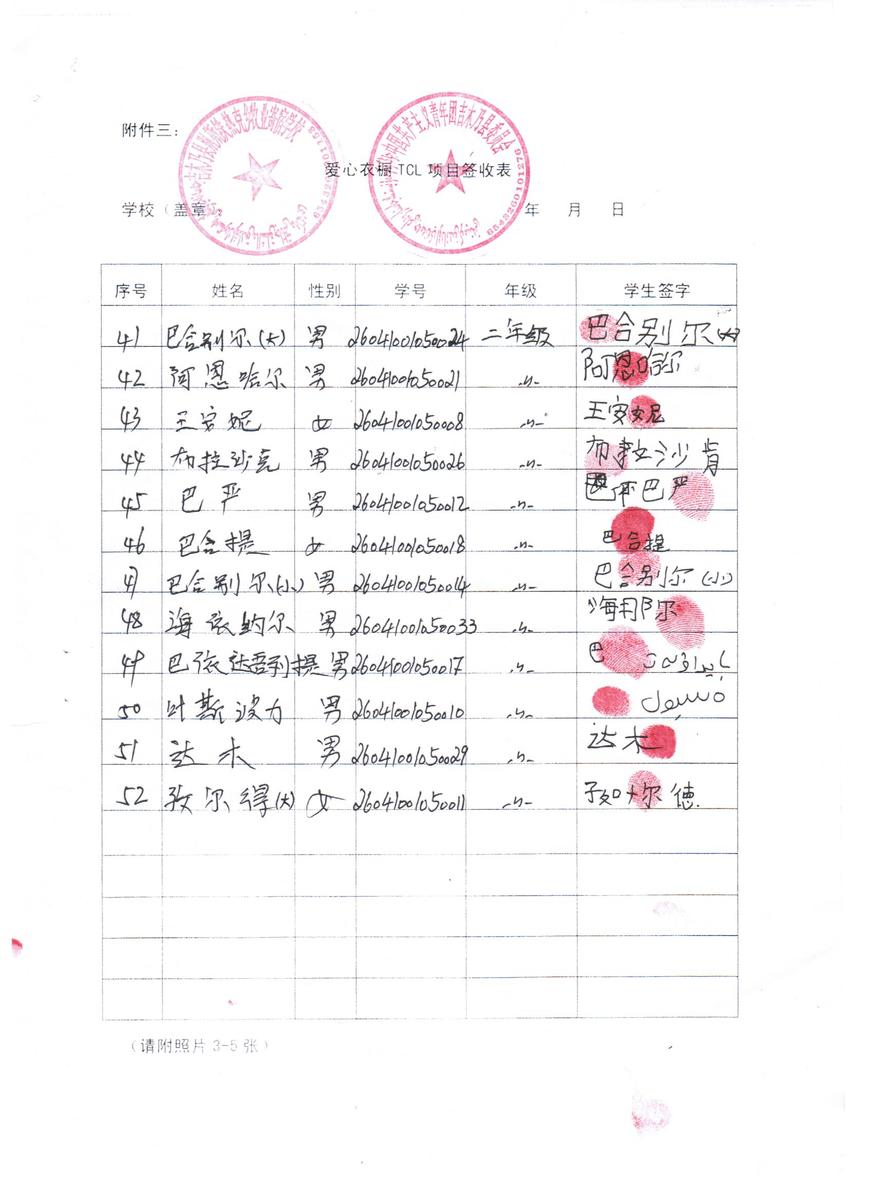 附件三：
爱心衣橱 TCL 项目签收表
学校（盖章
年 月 日
序号 姓名 性别 学号 年级 学生签字
41 巴合别尔(大) 男 26041001050024 二年级 巴合别尔(大)
42 阿恩哈尔 男 26041001050021 〃 阿恩哈尔
43 王安妮 女 26041001050008 〃 王安妮
44 布拉沙克 男 26041001050026 〃 布 沙肯
45 巴严 男 26041001050012 〃 巴严
46 巴合提 女 26041001050018 〃 巴合提
47 巴合别尔(小) 男 26041001050014 〃 巴合别尔(小)
48 海依纳尔 男 26041001050033 〃 海 尔
49 巴依达 提 男 26041001050017 〃 巴
50 叶斯波力 男 26041001050010 〃
51 达木 男 26041001050029 〃 达木
52 孜尔得(大) 女 26041001050011 〃 尔德
（请附照片 3-5 张）